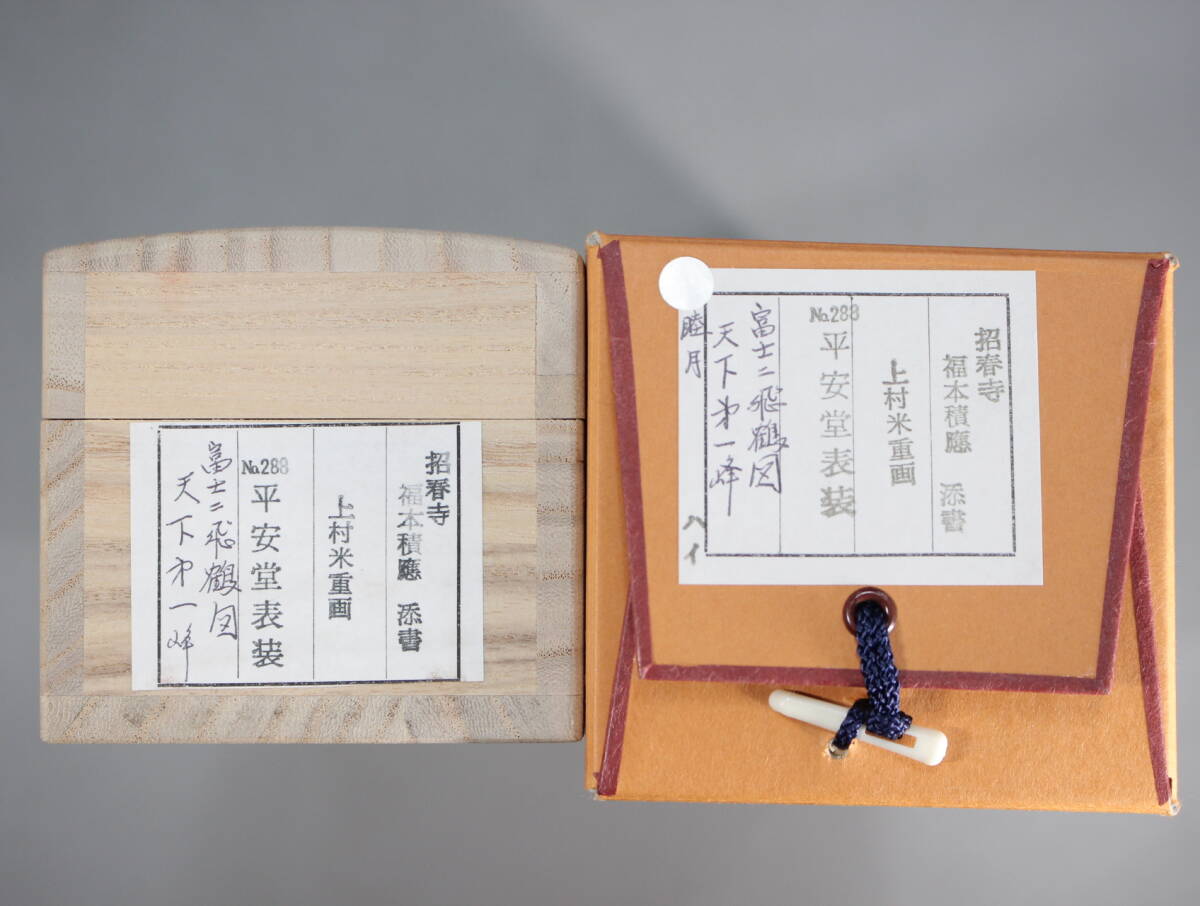 招春寺
福本積應 添書
上村米重画
No.288
平安堂表装
富士ニ飛鶴図
天下第一峰
招春寺
福本積應 添書
上村米重画
No.288
平安堂表装
富士ニ飛鶴図
天下第一峰
睦月
ハイ